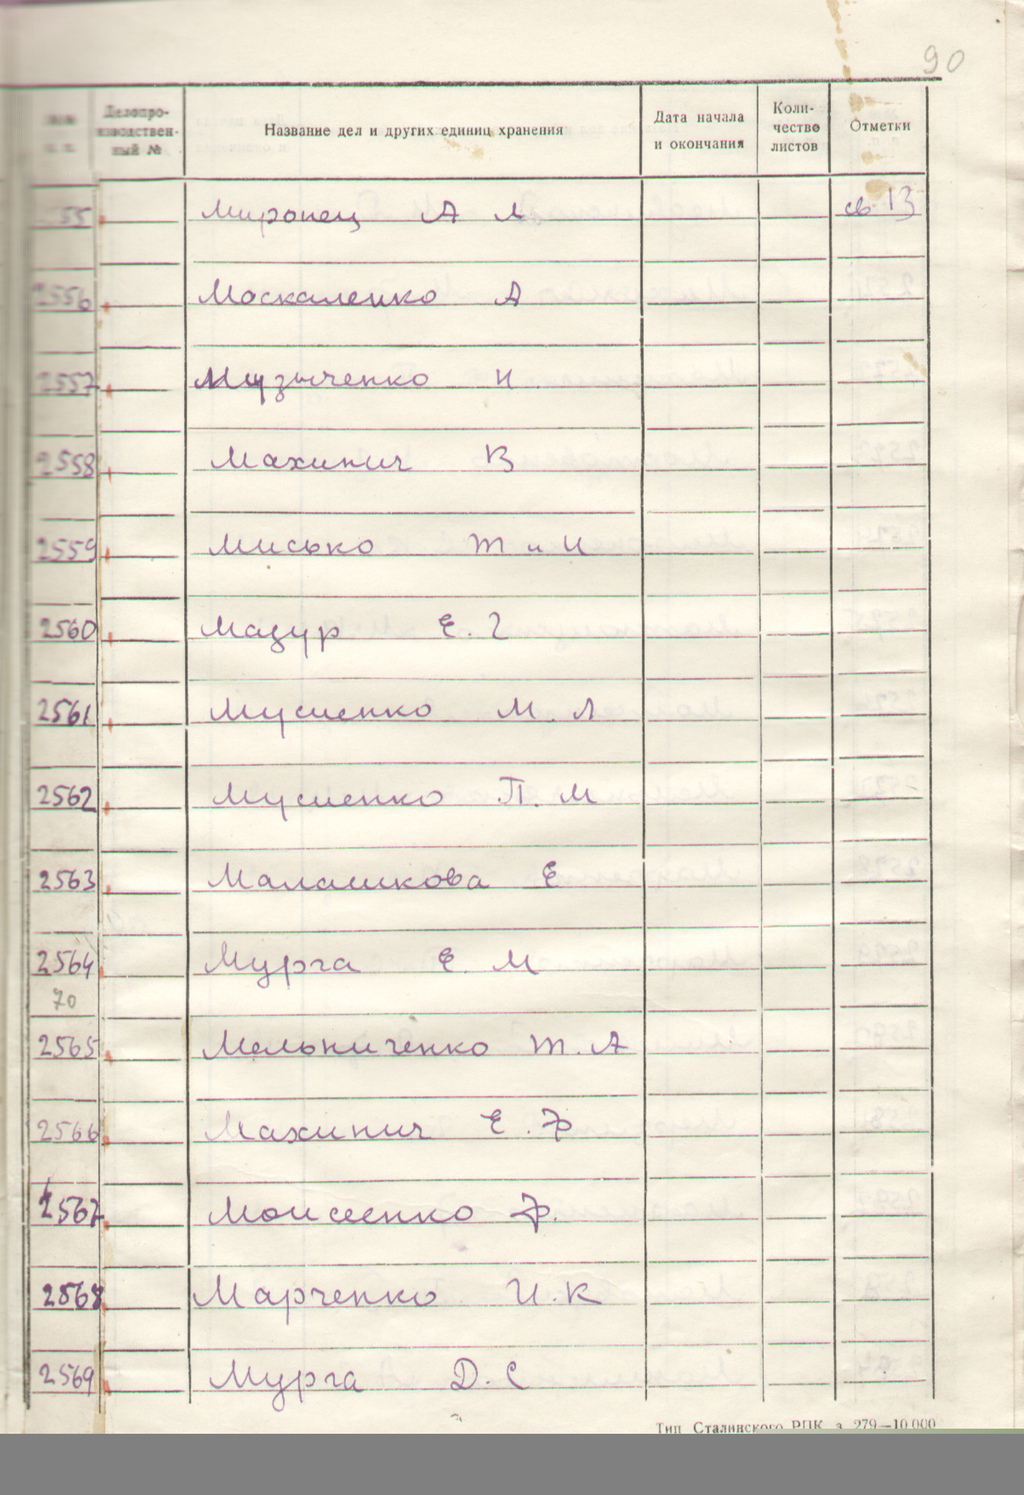 90
Делопро-
изводствен-
ный №
Название дел и других единиц хранения
Дата начала
и окончания
Коли-
чество
листов
Отметки
Миронец А М св 13
2556 Москаленко А
2557 Музыченко И.
2558 Махинич В
2559 Мисько Т и И
2560 Мазур Е. Г
2561 Мусиенко М. Л
2562 Мусиенко П. М
2563 Малашкова Е
2564 Мурга Е. М
70
2565 Мельниченко Т. А
2566 Махинич Е. Ф
2567 Моисеенко Ф.
2568 Марченко И. К
2569 Мурга Д. С
Тип Сталинского РПК з 279—10.000